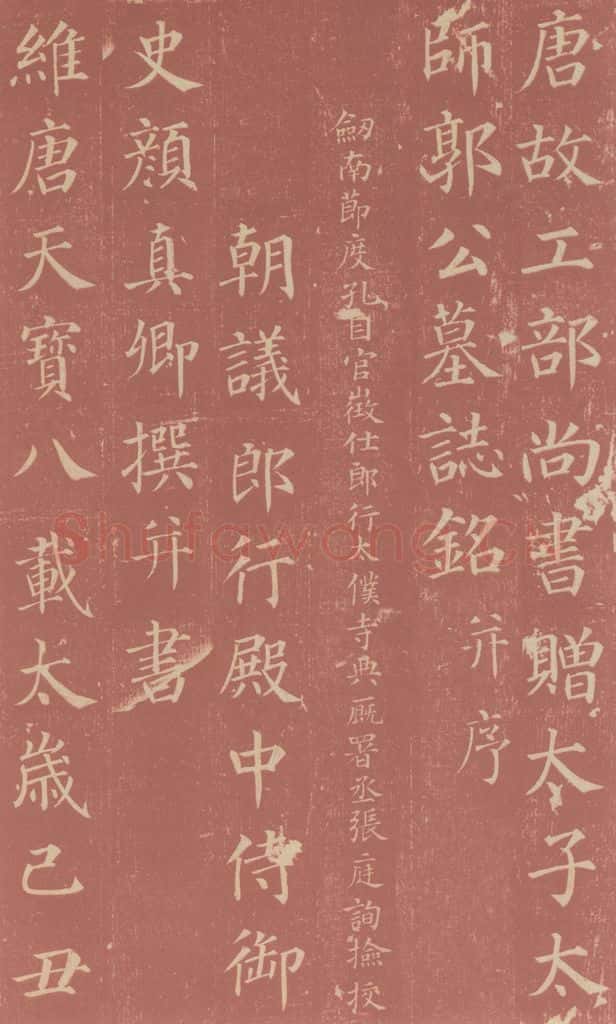 唐故工部尚書贈太子太
師郭公墓誌銘并序
劒南節度孔目官徵仕郎行太僕寺典厩署丞張庭詢撿挍
朝議郎行殿中侍御
史顔真卿撰并書
維唐天寶八載太歲己丑
Shufawang.cn